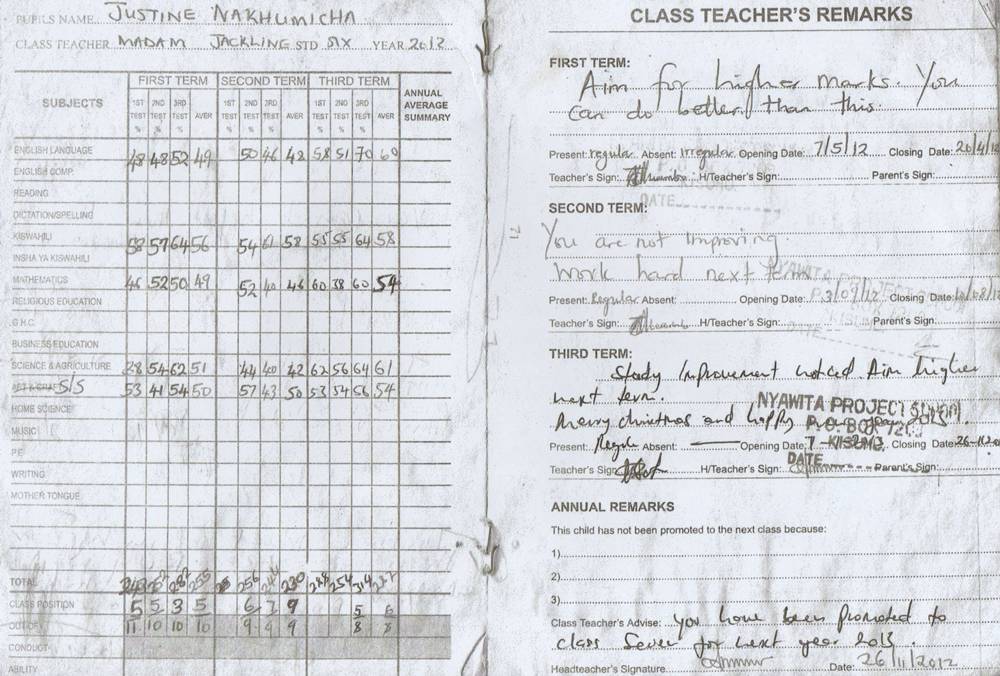 PUPILS NAME JUSTINE NAKHUMICHA
CLASS TEACHER MADAM JACKLING STD SIX YEAR 2012
SUBJECTS FIRST TERM SECOND TERM THIRD TERM ANNUAL AVERAGE SUMMARY
1ST TEST % 2ND TEST % 3RD TEST % AVER 1ST TEST % 2ND TEST % 3RD TEST % AVER 1ST TEST % 2ND TEST % 3RD TEST % AVER
ENGLISH LANGUAGE 48 48 52 49 50 46 48 58 51 70 60
ENGLISH COMP.
READING
DICTATION/SPELLING
KISWAHILI 58 57 64 56 54 61 58 55 55 64 58
INSHA YA KISWAHILI
MATHEMATICS 46 52 50 49 52 40 46 60 38 60 54
RELIGIOUS EDUCATION
G.H.C.
BUSINESS EDUCATION
SCIENCE & AGRICULTURE 38 54 62 51 44 40 42 62 56 64 61
S/S 53 41 54 50 57 43 50 53 54 56 54
HOME SCIENCE
MUSIC
P.E
WRITING
MOTHER TONGUE
TOTAL 255 256 230 254 314
CLASS POSITION 5 5 3 5 6 7 9 5 6
OUT OF 11 10 10 10 9 9 9 8 8
CONDUCT
ABILITY
71
CLASS TEACHER'S REMARKS
FIRST TERM:
Aim for higher marks. You
can do better than this.
Present: regular Absent: Irregular Opening Date: 7/5/12 Closing Date: 20/4/12
Teacher's Sign: H/Teacher's Sign: Parent's Sign:
DATE
SECOND TERM:
You are not Improving.
Work hard next term
Present: Regular Absent: Opening Date: 3/09/12 Closing Date:
Teacher's Sign: H/Teacher's Sign: Parent's Sign:
THIRD TERM:
Study Improvement noticed Aim higher
next term.
Merry christmas and happy
NYAWITA PROJECT
P.O. BOX
Present: Regular Absent: Opening Date: Closing Date:
DATE
Teacher's Sign H/Teacher's Sign: Parent's Sign:
ANNUAL REMARKS
This child has not been promoted to the next class because:
1)
2)
3)
Class Teacher's Advise: You have been Promoted to
class Seven for next year 2013.
Headteacher's Signature Date: 26/11/2012